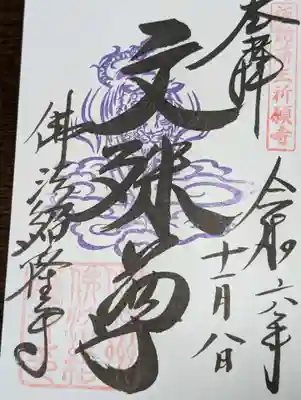 主祈願寺
奉拝
令和六年
十一月八日
文殊尊
佛法紹隆寺